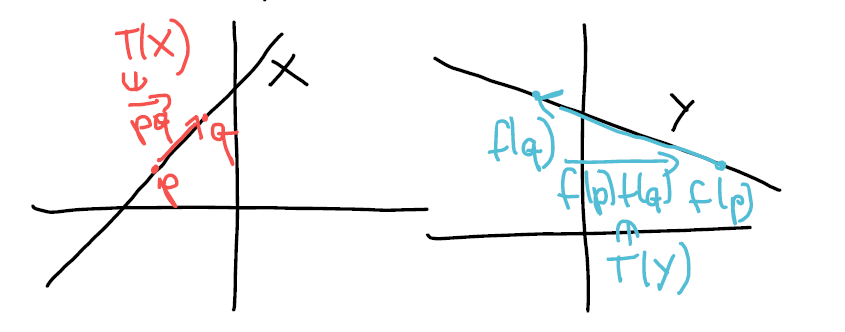 T(X)
↓
pq
X
q
p
Y
f(q)
f(p)f(q)
f(p)
T(Y)